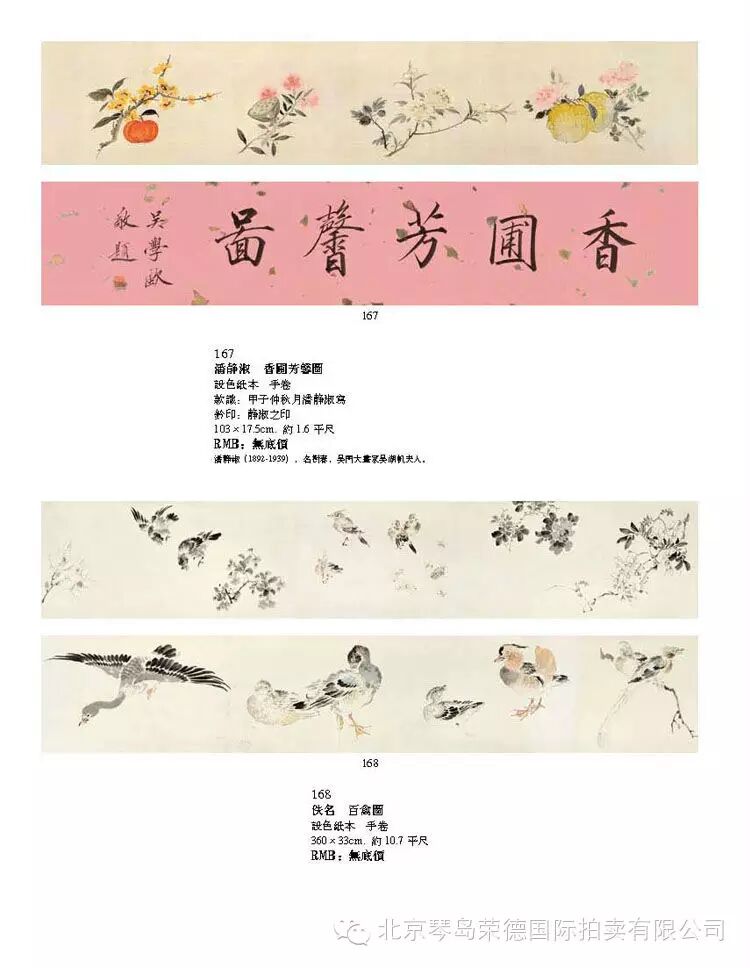 香圃芳馨啚
167
167
潘靜淑 香圃芳馨圖
設色紙本 手卷
款識：甲子仲秋月潘靜淑寫
鈐印：靜淑之印
103×17.5cm. 約1.6 平尺
RMB：無底價
潘靜淑（1892-1939），名樹春，吳門大畫家吳湖帆夫人。
168
168
佚名 百禽圖
設色紙本 手卷
360×33cm. 約10.7 平尺
RMB：無底價
北京琴岛荣德国际拍卖有限公司